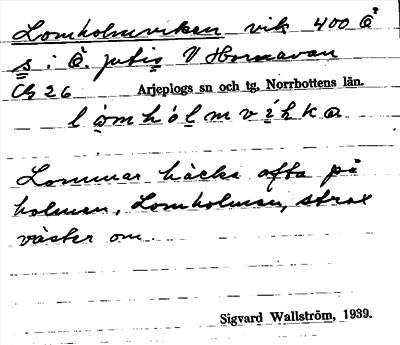 Lomholmviken vik 400 Å
s: Ö. jutis V Hornavan
C 26 Arjeplogs sn och tg, Norrbottens län.
Lommar häcka ofta på
holmen, Lomholmen, strax
väster om
Sigvard Wallström, 1939.